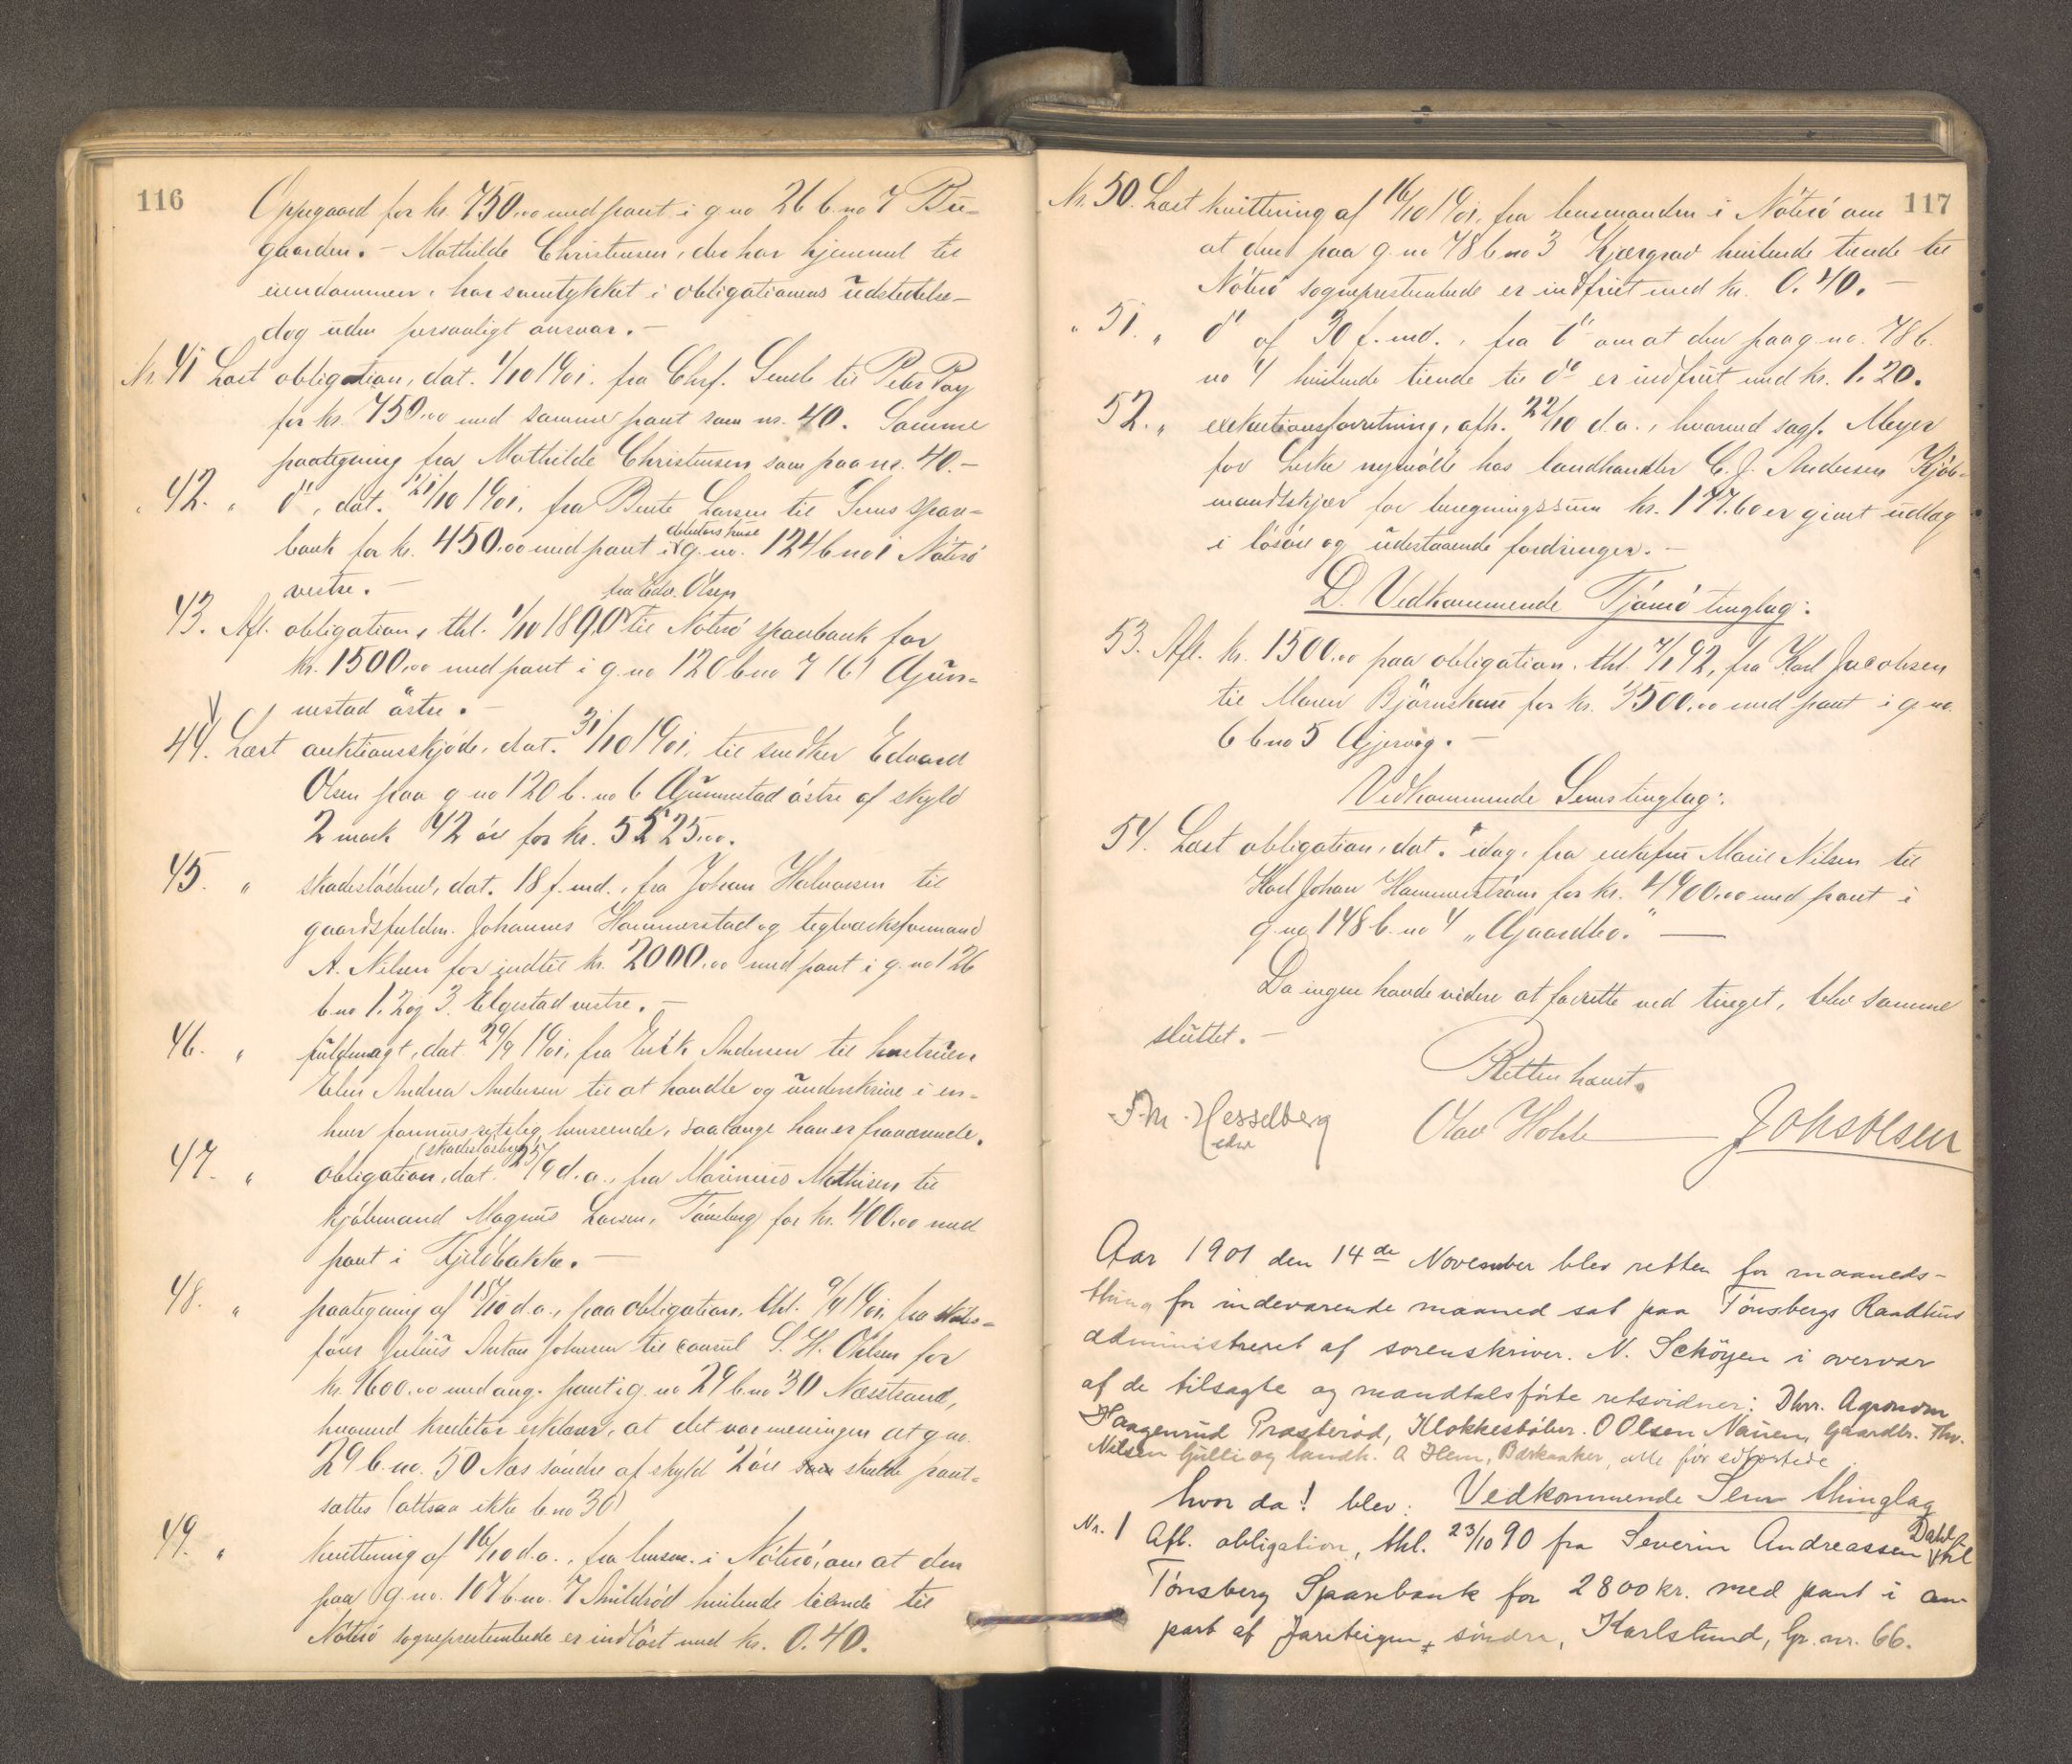 116
Oppegaard for kr. 750.00 med pant i g.no 26 b.no 7 Bu-
gaarden. - Mathilde Christensen, der har hjemmel til
eiendommen, har samtykket i obligationens udstedelse -
dog uden personligt ansvar. -
Nr. 41 Læst obligation, dat. 1/10 1901, fra Chrf. Sende til Peter Pay
for kr. 750.00 med samme pant som nr. 40. Samme
paategning fra Mathilde Christensen som paa nr. 40. -
" 42. " do, dat. 21/10 1901, fra Bente Larsen til Sems spare-
bank for kr. 450.00 med pant i debitors huse g.no. 124 b.no 1 Nøterø
vestre. -
43. Afl. obligation, thl. 1/10 1890 fra Edv. Olsen til Nøterø sparebank for
kr. 1500.00 med pant i g.no 120 b.no 7 (6) Gjun-
nestad østre. -
44. Læst auktionsskjøde, dat. 31/10 1901, til snedker Edvard
Olsen paa g.no 120 b.no 6 Gjunnestad østre af skyld
2 mark 42 øre for kr. 5525.00.
45. " skadesløsbrev, dat. 18 f.md., fra Johan Halvorsen til
gaardsfuldm. Johannes Hammerstad og teglværksformand
A. Nilsen for indtil kr. 2000.00 med pant i g.no 126
b.no 1, 2 og 3 Elgestad vestre. -
46. " fuldmagt, dat. 29/9 1901, fra Erik Andersen til hustruen
Elen Andrea Andersen til at handle og underskrive i en-
hver formuesretslig henseende, saalænge han er fraværende.
47. " obligation (skadesløsbrev), dat. 25/9 d.a., fra Marinius Mathisen til
kjøbmand Magnus Larsen, Tønsberg for kr. 400.00 med
pant i Fjeldbakke. -
48. " paategning af 15/10 d.a., paa obligation, thl. 9/9 1901, fra skibs-
fører Julius Anton Johnsen til consul S. H. Ohlsen for
kr. 9600.00 med ang. pant i g.no 29 b.no 30 Næsstrand,
hvorved kreditor erklærer, at det var meningen at g.no.
29 b.no. 50 Nes søndre af skyld 2 øre skulde pant-
sættes (altsaa ikke b.no 30)
49. " kvittering af 16/10 d.a., fra lensm. i Nøterø, om at den
paa g.no. 107 b.no. 7 Smidsrød heilende tiende til
Nøterø sogneprestembede er indløst med kr. 0.40.
117
Nr. 50. Læst kvittering af 16/10 1901, fra lensmanden i Nøterø om
at den paa g.no 78 b.no 3 Kjærgrav heilende tiende til
Nøterø sogneprestembede er indfriet med kr. 0.40. -
" 51. " do af 30 f.md., fra do om at den paa g.no. 78 b.
no 4 heilende tiende til do er indfriet med kr. 1.20.
52. " exekutionsforretning, afh. 22/10 d.a., hvorved sagf. Meyer
for Liske nymølle hos landhandler C. J. Andersen Kjøb-
mandskjær for beregningssum kr. 177.60 er gjort udlæg
i løsøre og udestaaende fordringer. -
D. Vedkommende Tjømø tinglag:
53. Afl. kr. 1500.00 paa obligation, thl. 7/1 92, fra Karl Jacobsen
til Maren Bjørnskau for kr. 3500.00 med pant i g.no.
6 b.no 5 Gjervaag. -
Vedkommende Sems tinglag:
54. Læst obligation, dat. idag, fra enkefru Marie Nilsen til
Karl Johan Hammerstrøm for kr. 4400.00 med pant i
g.no 148 b.no 4 "Gjaardbo." -
Da ingen havde videre at forrette ved tinget, blev samme
sluttet. -
Retten hævet.
F. M. Hesselberg
edsv
Olav Holth
Johs Olsen
Aar 1901 den 14de November blev retten for maaneds-
thing for indeværende maaned sat paa Tønsbergs Raadhus
administreret af sorenskriver N. Schøyen i overvær
af de tilsagte og mandtalsførte retsvidner: Dhrr. Agronom
Haagenrud Presterød, Klokkestøber O Olsen Nauen, Gaardbr. Thv.
Nilsen Gulli og landh. A Hem, Barkaaker, alle før edfæstede
hvor da! blev: Vedkommende Sem thinglag
Nr. 1 Afl. obligation, thl. 23/10 90 fra Severin Andreassen Dahl til
Tønsberg Sparebank for 2800 kr. med pant i en
part af Jareteigen søndre, Karlslund, Gr. nr. 66.